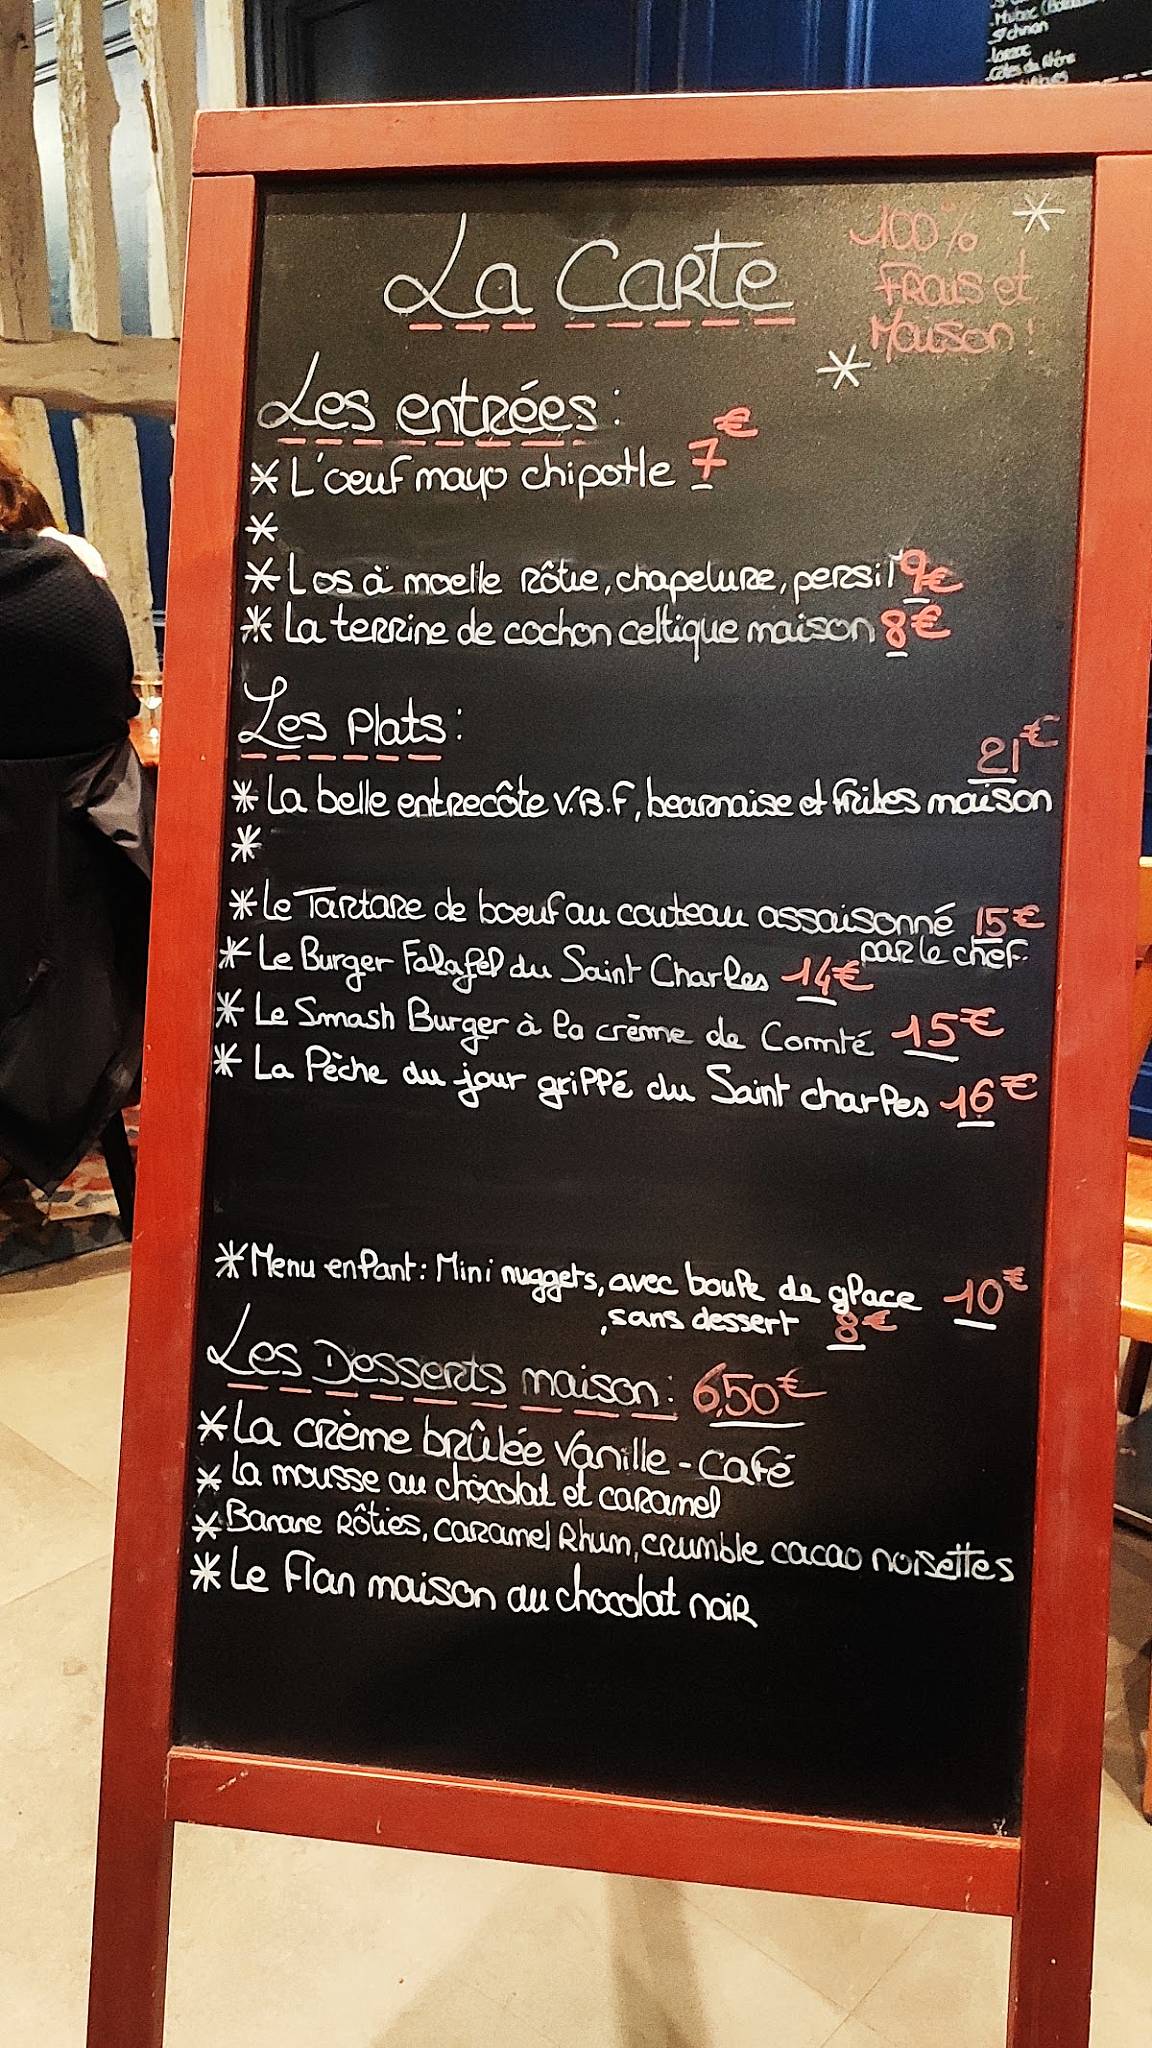 St chinian
Larzac
Côtes du Rhône
La Carte
100%
Frais et
Maison !
Les entrées :
* L'œuf mayo chipotle 7€
*
* L os à moelle rôtie, chapelure, persil 9€
* La terrine de cochon celtique maison 8€
Les plats :
21€
* La belle entrecôte V.B.F, bearnaise et frites maison
*
* Le Tartare de boeuf au couteau assaisonné 15€
par le chef.
* Le Burger Falafel du Saint Charles 14€
* Le Smash Burger à la crème de Comté 15€
* La Pêche du jour grippé du Saint charles 16€
* Menu enfant : Mini nuggets, avec boule de glace 10€
, sans dessert 8€
Les Desserts maison : 6,50€
* La crème brûlée Vanille - Café
* La mousse au chocolat et caramel
* Banane Rôties, caramel Rhum, crumble cacao noisettes
* Le Flan maison au chocolat noir